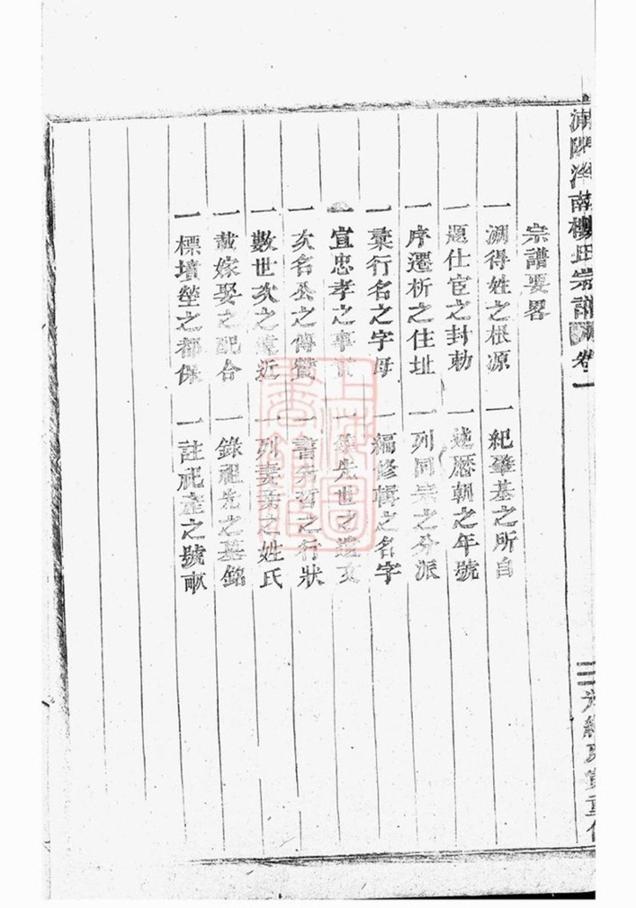 浦陽泮南樓氏宗譜 卷一
宗譜要畧
一溯得姓之根源 一紀肇基之所自
一題仕宦之封勅 一述歷朝之年號
一序遷析之住址 一列同宗之分派
一彙行名之字母 一編修輯之名字
一宣忠孝之事實 一集先世之遺文
一次名公之傳贊 一書先哲之行狀
一數世次之遠近 一列妻妾之姓氏
一載嫁娶之配合 一錄祖先之墓銘
一標墳塋之都保 一註祀產之號畝
三